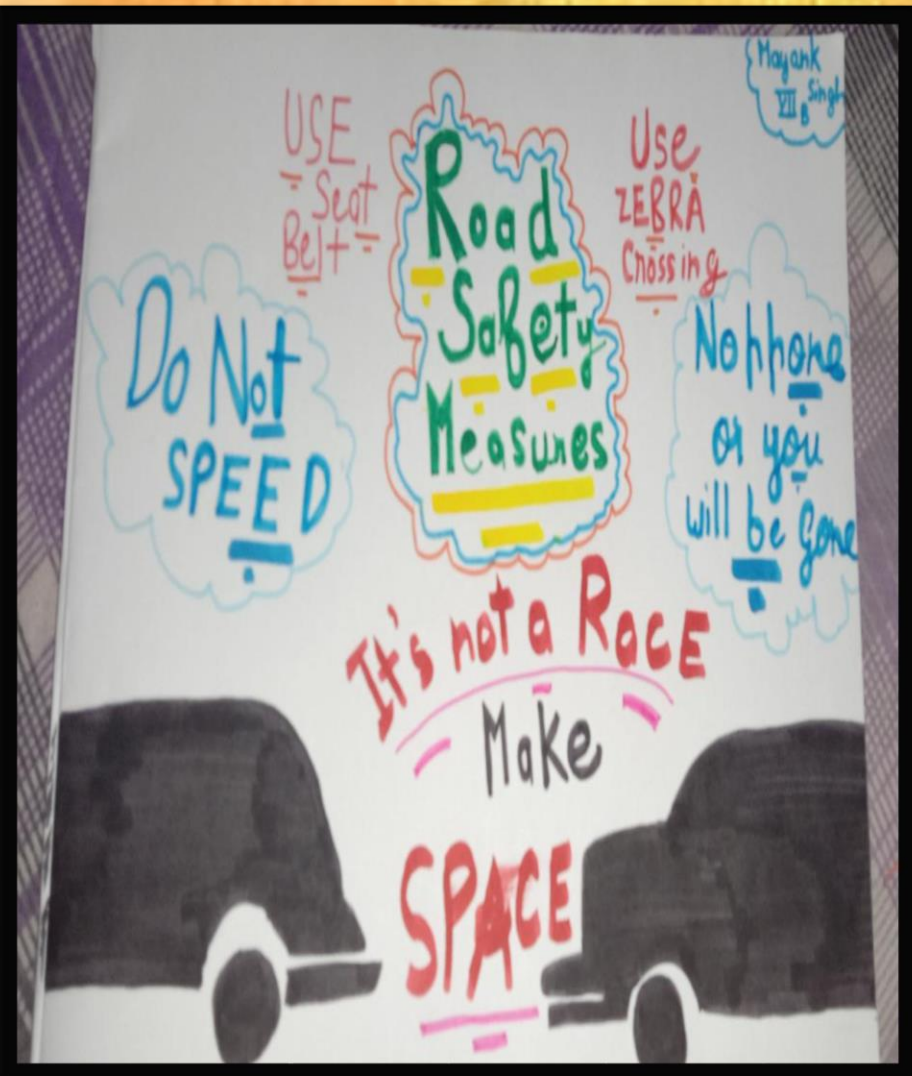 Mayank
Singh
VII B
USE
Seat
Belt
Road
Safety
Measures
Use
ZEBRA
Crossing
Do Not
SPEED
No phone
or you
will be gone
It's not a RACE
Make
SPACE